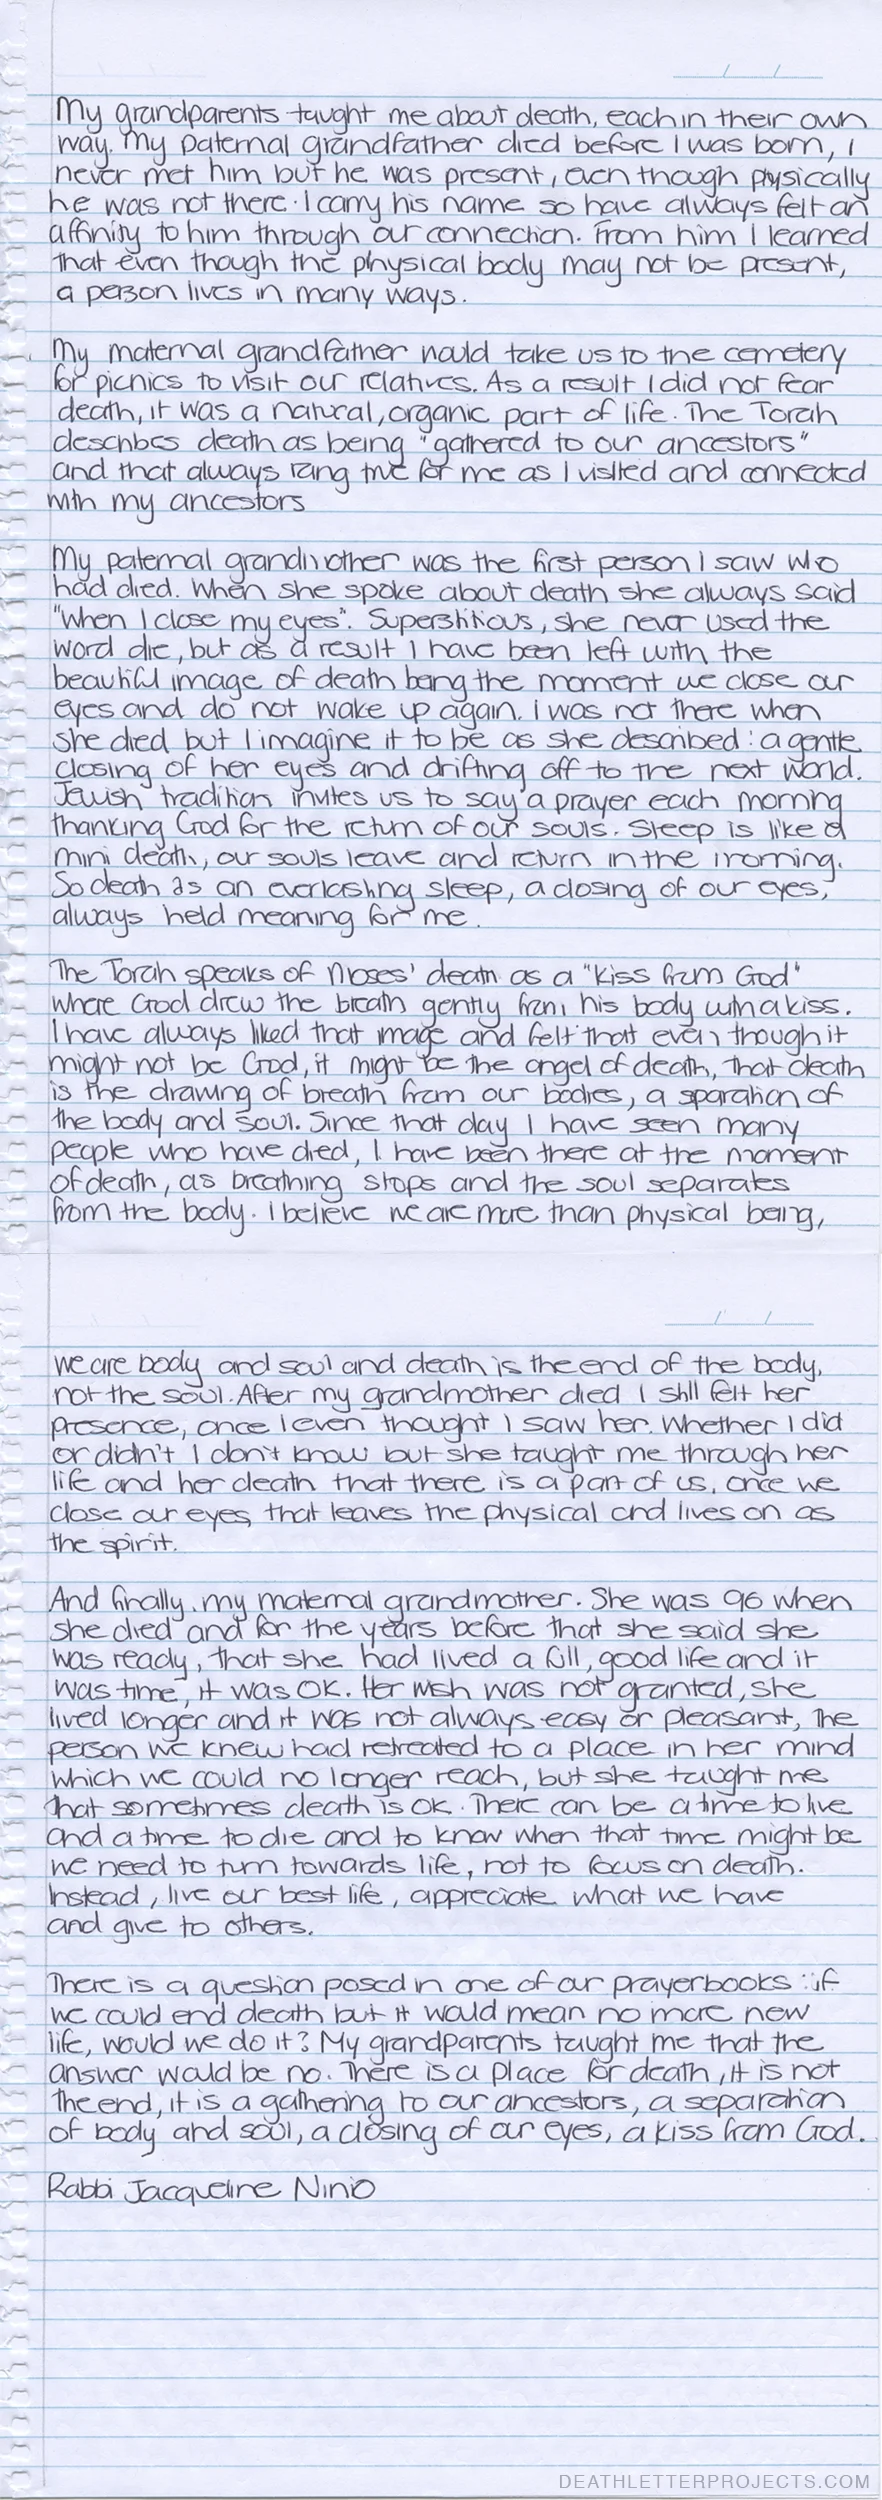 My grandparents taught me about death, each in their own
way. My paternal grandfather died before I was born, I
never met him but he was present, even though physically
he was not there. I carry his name so have always felt an
affinity to him through our connection. From him I learned
that even though the physical body may not be present,
a person lives in many ways.
My maternal grandfather would take us to the cemetery
for picnics to visit our relatives. As a result I did not fear
death, it was a natural, organic part of life. The Torah
describes death as being "gathered to our ancestors"
and that always rang true for me as I visited and connected
with my ancestors
My paternal grandmother was the first person I saw who
had died. When she spoke about death she always said
"when I close my eyes". Superstitious, she never used the
word die, but as a result I have been left with the
beautiful image of death being the moment we close our
eyes and do not wake up again. I was not there when
she died but I imagine it to be as she described: a gentle
closing of her eyes and drifting off to the next world.
Jewish tradition invites us to say a prayer each morning
thanking God for the return of our souls. Sleep is like a
mini death, our souls leave and return in the morning.
So death as an everlasting sleep, a closing of our eyes,
always held meaning for me.
The Torah speaks of Moses' death as a "kiss from God"
where God drew the breath gently from his body with a kiss.
I have always liked that image and felt that even though it
might not be God, it might be the angel of death, that death
is the drawing of breath from our bodies, a sparation of
the body and soul. Since that day I have seen many
people who have died, I have been there at the moment
of death, as breathing stops and the soul separates
from the body. I believe we are more than physical being,
we are body and soul and death is the end of the body,
not the soul. After my grandmother died I still felt her
presence, once I even thought I saw her. Whether I did
or didn't I don't know but she taught me through her
life and her death that there is a part of us, once we
close our eyes, that leaves the physical and lives on as
the spirit.
And finally, my maternal grandmother. She was 96 when
she died and for the years before that she said she
was ready, that she had lived a full, good life and it
was time, it was OK. Her wish was not granted, she
lived longer and it was not always easy or pleasant, the
person we knew had retreated to a place in her mind
which we could no longer reach, but she taught me
that sometimes death is OK. There can be a time to live
and a time to die and to know when that time might be
we need to turn towards life, not to focus on death.
Instead, live our best life, appreciate what we have
and give to others.
There is a question posed in one of our prayerbooks: if
we could end death but it would mean no more new
life, would we do it? My grandparents taught me that the
answer would be no. There is a place for death, it is not
the end, it is a gathering to our ancestors, a separation
of body and soul, a closing of our eyes, a kiss from God.
Rabbi Jacqueline Ninio
DEATHLETTERPROJECTS.COM